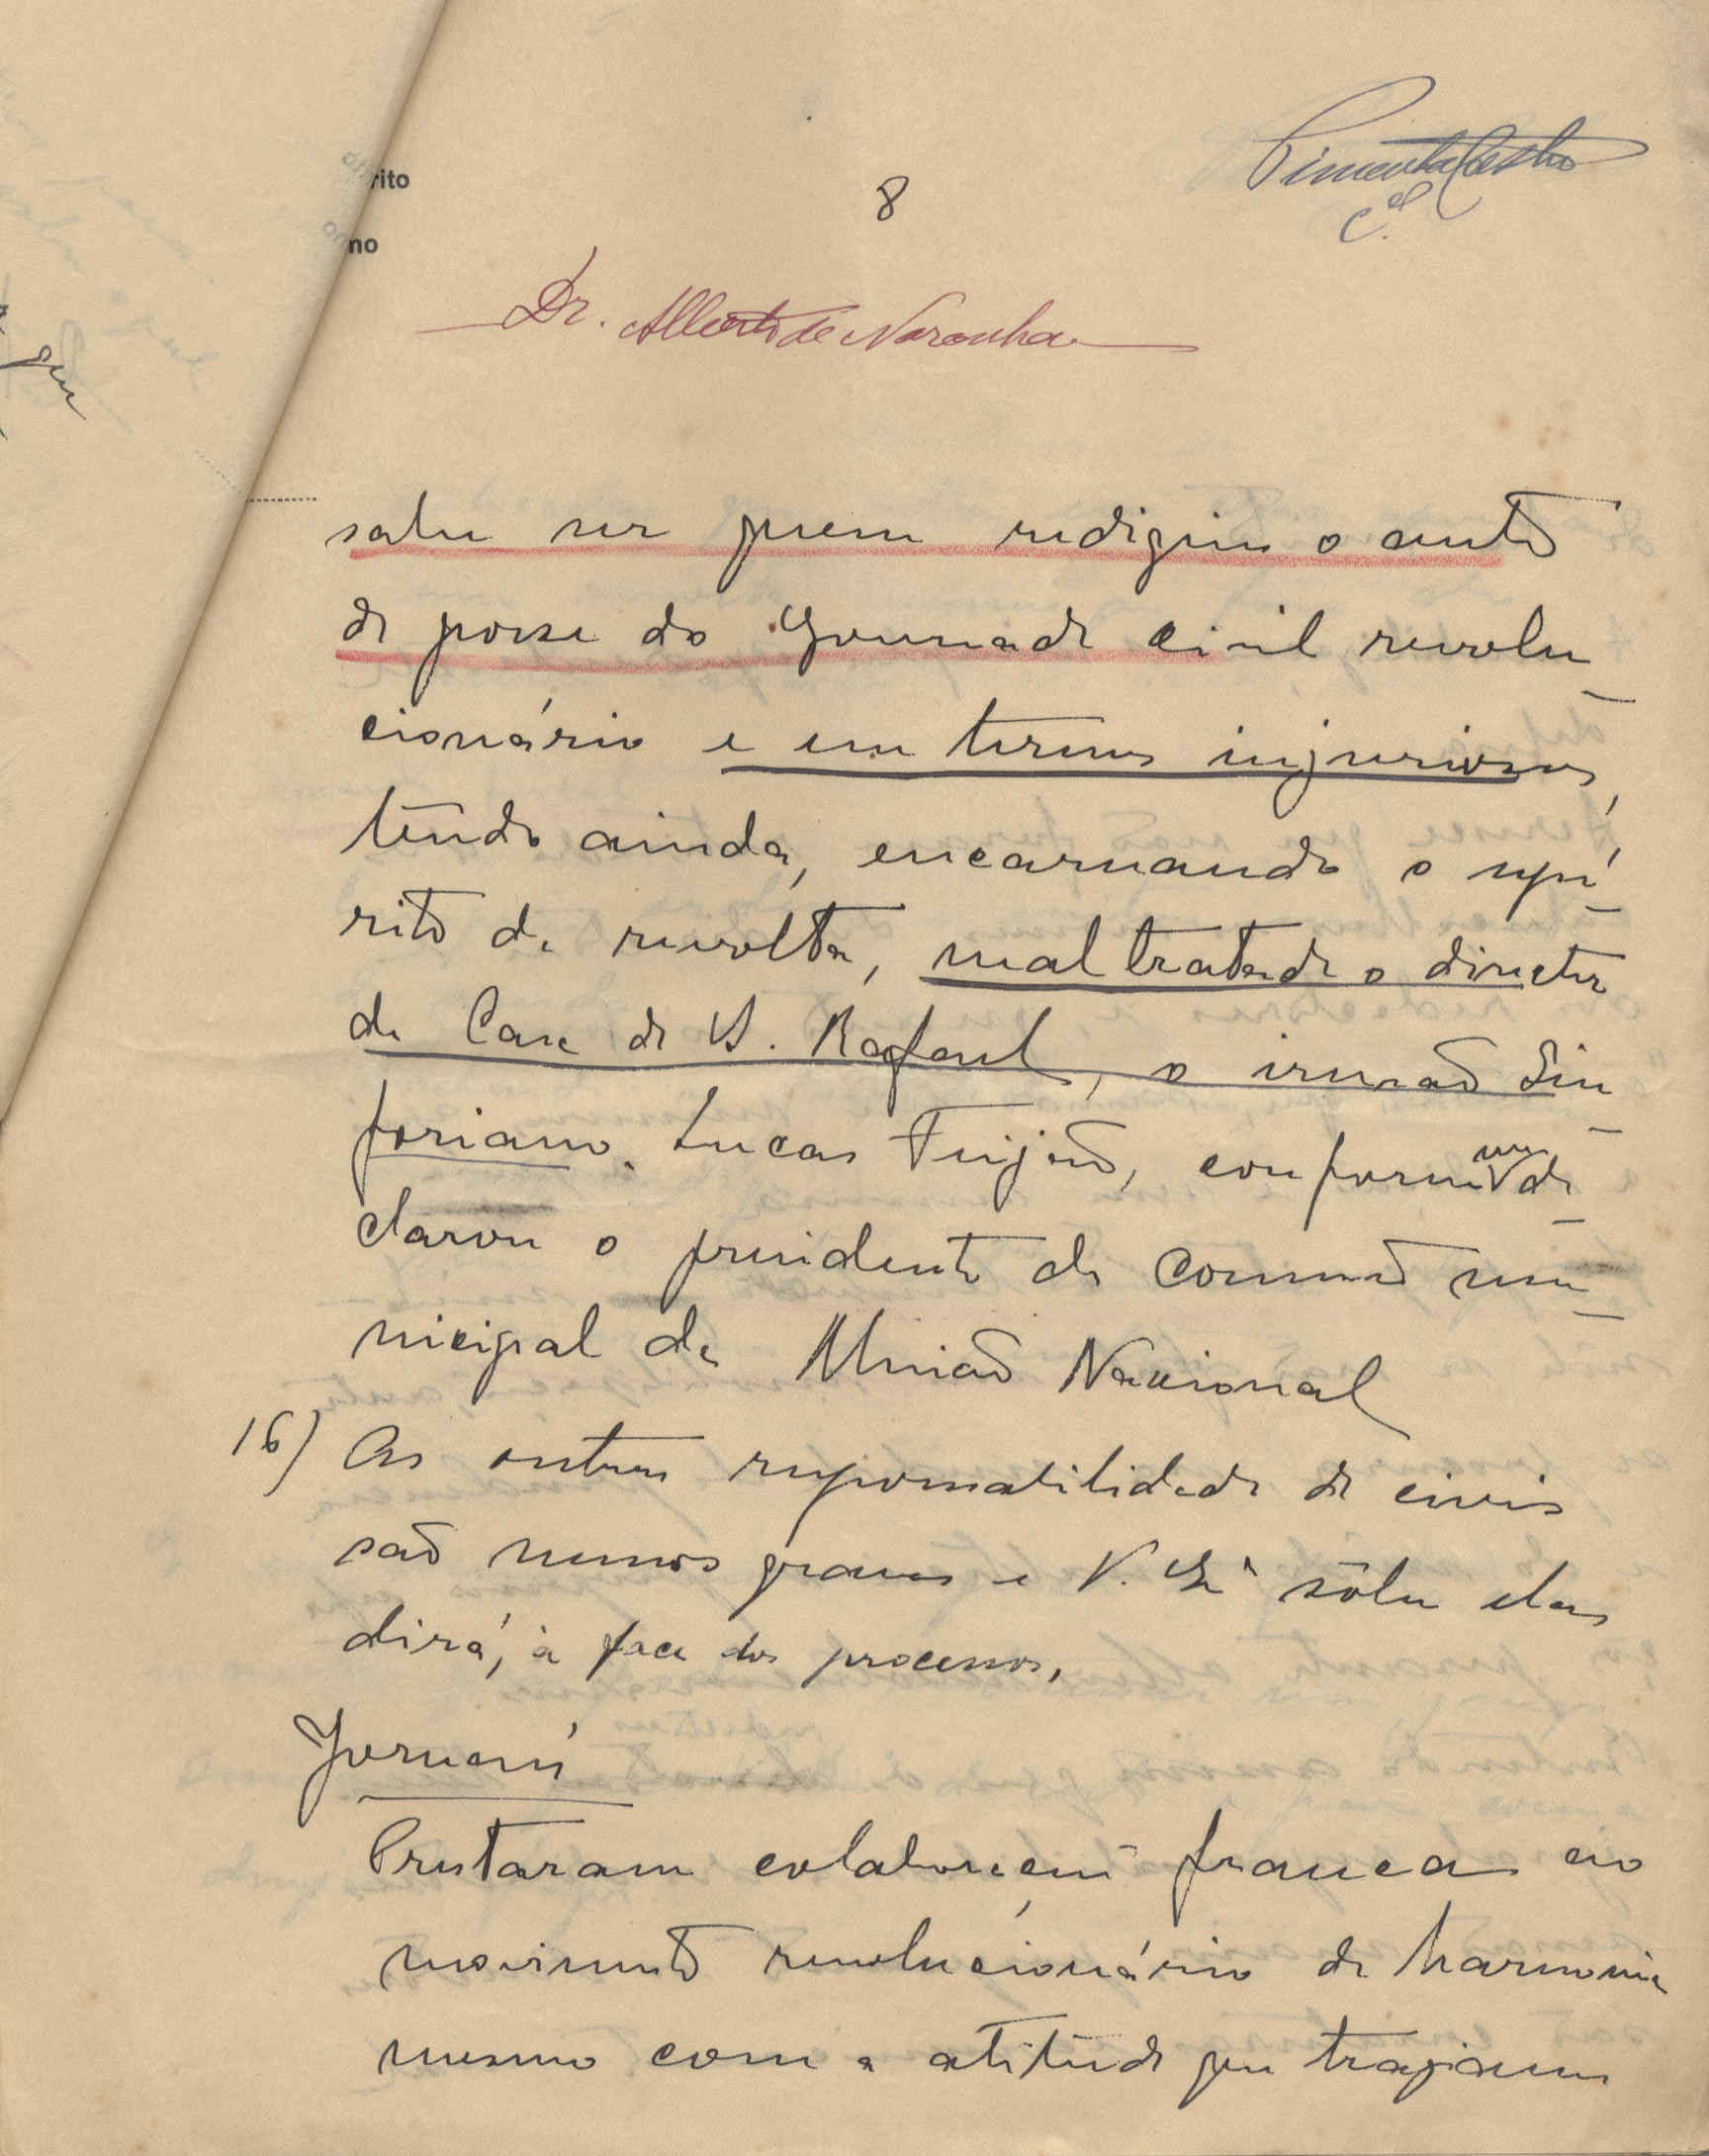 8
Pimenta Castro
C.el
rito
no
Dr. Alberto de Noronha
que
sabe ser quem redigiu o auto
de posse do Governador civil revolu_
cionário e em termos injuriosos,
tendo ainda, encarnando o espí_
rito da revolta, mal tratado o director
da Casa de S. Rafael, o irmão Sin_
foriano Lucas Feijão, conforme me de_
clarou o presidente da Comissão mu_
nicipal da União Nacional
16) As outras responsabilidades de civis
são menos graves e V. Exª sôbre elas
dirá, à face dos processos,
Jornais
Prestaram colaboração franca ao
movimento revolucionário de harmonia
mesmo com a atitude que traziam